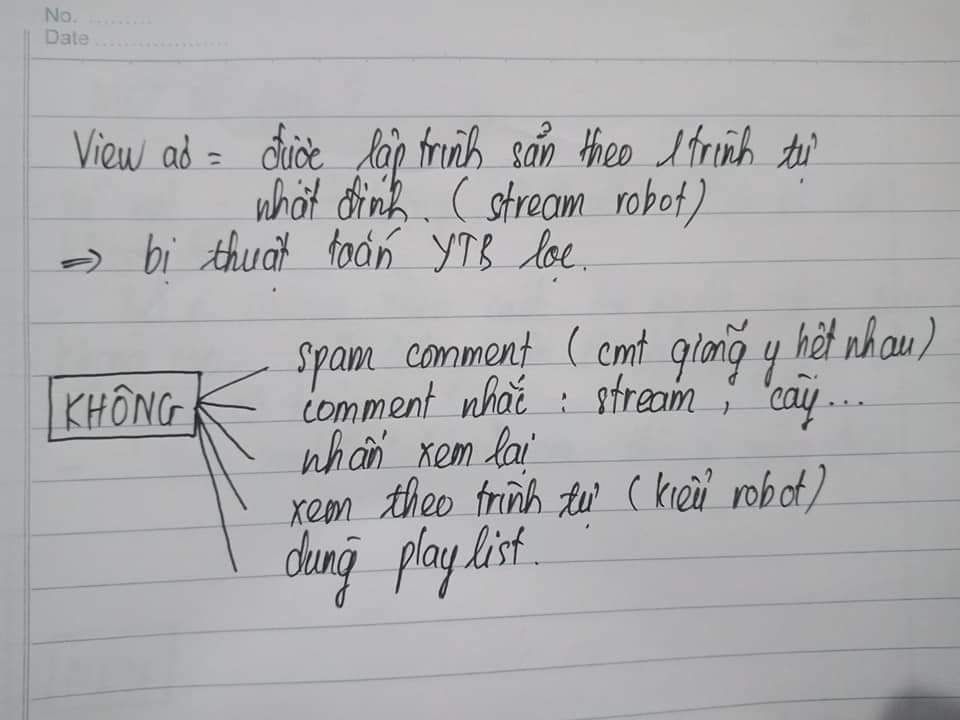 No. ...........
Date ......................
View ad = được lập trình sẵn theo 1 trình tự
nhất định. ( stream robot )
=> bị thuật toán YTB lọc.
spam comment ( cmt giống y hệt nhau )
KHÔNG comment nhắc : stream , cày...
nhấn xem lại
xem theo trình tự ( kiểu robot )
dùng playlist.